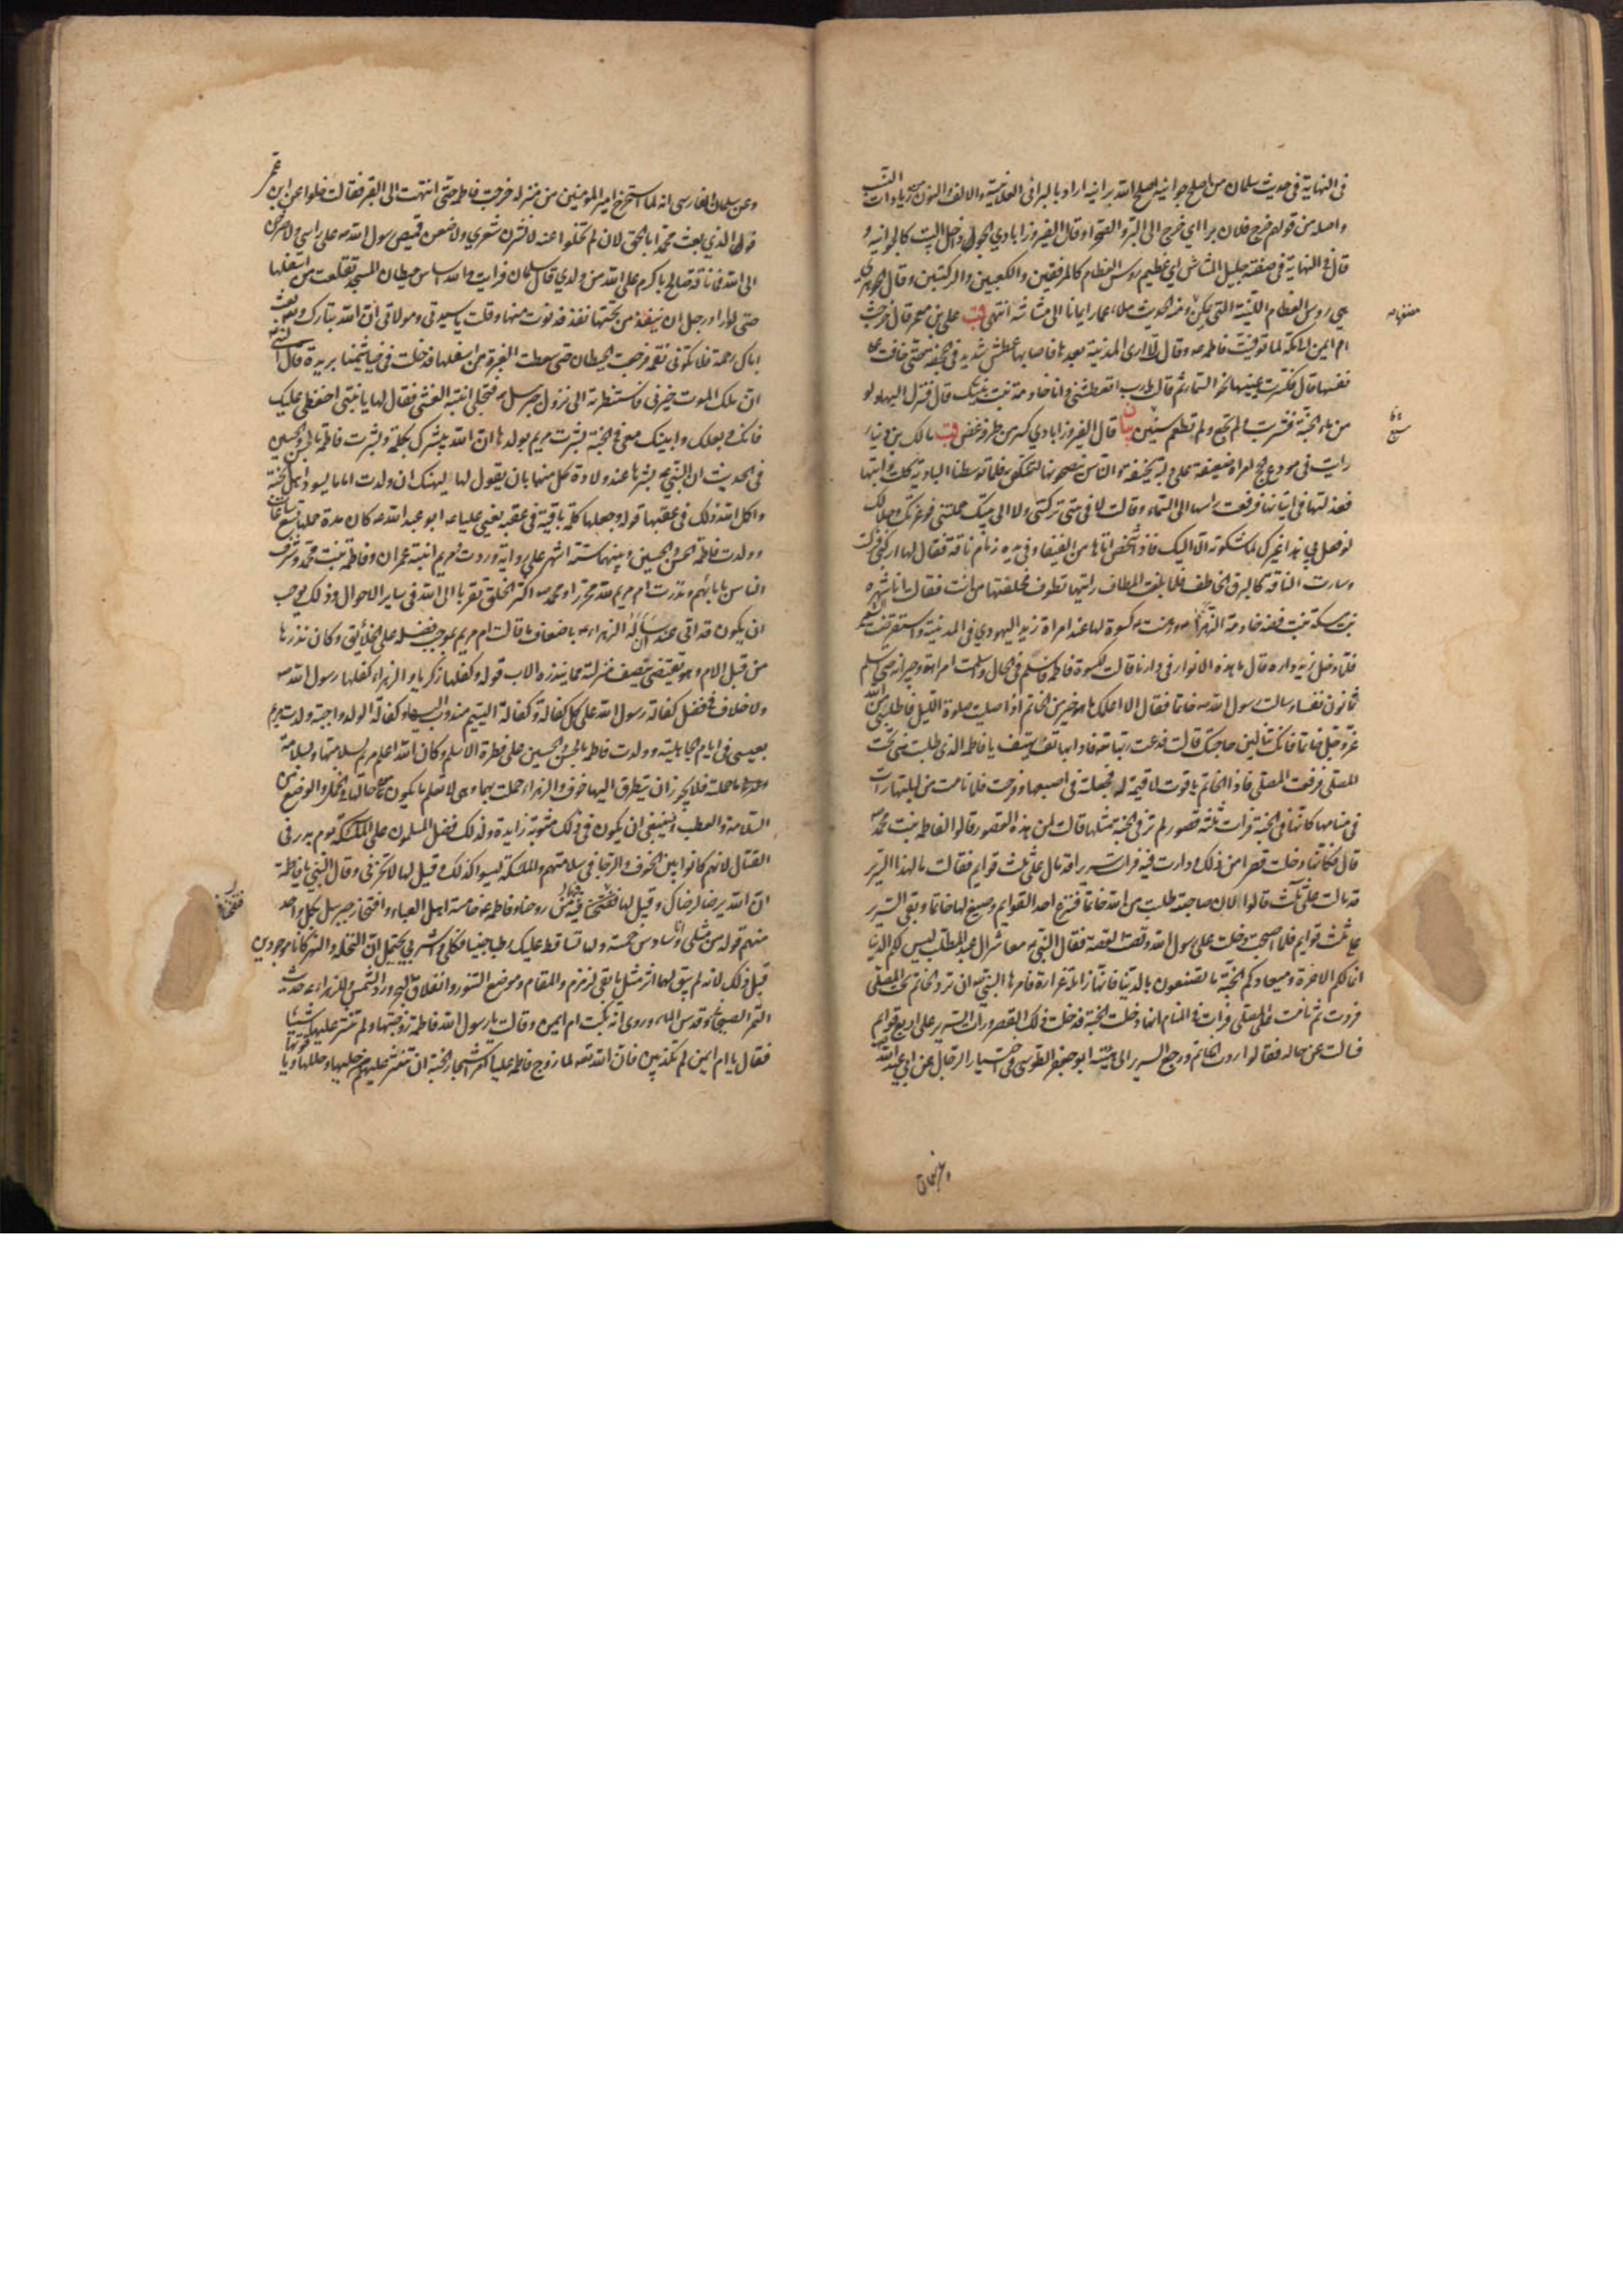 في النهاية في حديث سلمان من اصلح جوانيه اصلح الله برانيه اراد بالبراني العلانية والالف والنون من زيادات النسب
واصله من قولهم خرج فلان برا اي خرج الى البر والصحراء وقال الفيروزابادي الجو داخل البيت كالجوانية و
قال في النهاية في صفته جليل المشاش اي عظيم روس العظام كالمرفقين والكعبين والركبتين وقال الجوهري
هي روس العظام اللينة التي يمكن مضغها ومنه الحديث ملاء عمار ايمانا الى مشاشه انتهى قب علي بن معمر قال خرجت
ام ايمن الى مكة لما توفيت فاطمه ع وقال لا ارى المدينة بعدها فاصابها عطش شديد في الجحفة حتى خافت على
نفسها قال فكسرت عينيها نحو السماء ثم قال يا رب اتعطشني وانا خادمة بنت نبيك قال فنزل اليها دلو
من ماء الجنة فشربت ولم تجع ولم تطعم سنين بيان قال الفيروزابادي كسر من طرفه غض قب مالك بن دينار
رايت في مودع الحج امراة ضعيفة على دابة نحيفة والناس ينصحونها لتنكص فلما توسطنا البادية كلت دابتها
فعذلتها في اتيانها فرفعت راسها الى السماء وقالت لا في بيتي تركتني ولا الى بيتك حملتني فوعزتك وجلالك
لو فعل بي هذا غيرك لما شكوته الا اليك فاذا شخص اتاها من الفيفاء وفي يده زمام ناقة فقال لها اركبي فركبت
وسارت الناقة كالبرق الخاطف فلما بلغت المطاف رايتها تطوف فحلفتها من انت فقالت انا شهره
بنت مسكة بنت فضه خادمة الزهراء ع ورهنت ع كسوة لها عند امراة زيد اليهودي في المدينة واستقرضت الشعير
فلما دخل زيد داره قال ما هذه الانوار في دارنا قالت لكسوة فاطمه فاسلم في الحال واسلمت امراته وجيرانه حتى اسلم
ثمانون نفسا وسالت رسول الله ص خاتما فقال الا اعلمك ما هو خير من الخاتم اذا صليت صلوة الليل فاطلبي من الله
عز وجل خاتما فانك تنالين حاجتك قالت فدعت ربها تعالى فاذا بهاتف يهتف يا فاطمه الذي طلبت مني تحت
المصلى فرفعت المصلى فاذا الخاتم ياقوت لا قيمة له فجعلته في اصبعها وفرحت فلما نامت من ليلتها رات
في منامها كانها في الجنة فرات ثلثة قصور لم تر في الجنة مثلها قالت لمن هذه القصور قالوا لفاطمه بنت محمد ص
قال فكانها دخلت قصرا من ذلك ودارت فيه فرات سريرا قد مال على ثلث قوايم فقالت ما لهذا السرير
قد مالت على ثلث قالوا لان صاحبته طلبت من الله خاتما فنزع احد القوايم وصيغ لها خاتما وبقي السرير
على ثلث قوايم فلما اصبحت دخلت على رسول الله وقصت القصه فقال النبي ص معاشر ال عبد المطلب ليس لكم الدنيا
انما لكم الاخرة وميعادكم الجنة ما تصنعون بالدنيا فانها زايلة غرارة فامرها النبي ص ان ترد الخاتم تحت المصلى
فردت ثم نامت على المصلى فرات في المنام انها دخلت الجنة فدخلت ذلك القصر ورات السرير على اربع قوايم
فسالت عن حاله فقالوا ردت الخاتم ورجع السرير الى هيئته ابو جعفر الطوسي في اختيار الرجال عن ابي عبد الله
وعن سلمان
وعن سلمان الفارسي انه لما استخرج امير المؤمنين من منزله خرجت فاطمه حتى انتهت الى القبر فقالت خلوا عن ابن عمي
فوالذي بعث محمدا بالحق لان لم تخلوا عنه لانشرن شعري ولاضعن قميص رسول الله ص على راسي ولاصرخن
الى الله فما ناقة صالح باكرم على الله من ولدي قال سلمان فرايت والله اساس حيطان المسجد تقلعت من اسفلها
حتى لو اراد رجل ان ينفذ من تحتها نفذ فدنوت منها وقلت يا سيدتي ومولاتي ان الله تبارك وتعالى بعث
اباك رحمة فلا تكوني نقمه فرجعت الحيطان حتى سطعت الغبرة من اسفلها فدخلت في خياشيمنا بريدة قال النبي ص
ان ملك الموت خيرني فاستنظرته الى نزول جبرئيل ص فتجلى ابنته الغشي فقال لها يا بنتي احفظي عليك
فانك وبعلك وابنيك معي في الجنة بشرت مريم بولدها ان الله يبشرك بكلمة وبشرت فاطمة بالحسن والحسين
في الحديث ان النبي ص بشرها عند ولادة كل منهما بان يقول لها ليهنك ان ولدت اماما يسود اهل الجنة
واكمل الله ذلك في عقبها قوله وجعلها كلمة باقية في عقبه يعني عليا ع ابو عبد الله ع كان مدة حملها تسع ساعات
وولدت فاطمة الحسن والحسين وبينهما ستة اشهر على رواية وردت ومريم ابنة عمران وفاطمة بنت محمد وشرف
الناس بابائهم ونذرت ام مريم لله محررا ومحمد ص اكثر الخلق تقربا الى الله في ساير الاحوال وذلك يوجب
ان يكون قد اتى عند ان سال له الزهراء ع باضعاف ما قالت ام مريم بموجب فضله على الخلايق وكان نذرها
من قبل الام وهو يقتضي تنصيف منزلته مما ينذره الاب قوله وكفلها زكريا والزهراء كفلها رسول الله ص
ولا خلاف في فضل كفالة رسول الله على كل كفالة وكفالة اليتيم مندوب اليها وكفالة الولد واجبة ولدت مريم
بعيسى في ايام الجاهلية وولدت فاطمة بالحسن والحسين على فطرة الاسلم وكان الله اعلم مريم بسلامتها وسلامة
ما حملته فلا يجوز ان يتطرق اليها خوف والزهراء حملت بهما وهي لا تعلم ما يكون من حالها في الحمل والوضع من
السلامة والعطب فينبغي ان يكون في ذلك مثوبة زايدة ولذلك فضل المسلمون على الملئكة يوم بدر في
القتال لانهم كانوا بين الخوف والرجا في سلامتهم والملئكة ليسوا كذلك وقيل لها لا تحزني وقال النبي يا فاطمة
ان الله يرضى لرضاك وقيل لها فنفخنا فيها من روحنا وفاطمه ع خامسة اهل العباء وافتخار جبرئيل بكل واحد
منهم قوله من مثلي وانا سادس خمسة ولها تساقط عليك رطبا جنيا فكلي واشربي يحتمل ان النخلة والنهر كانا موجودين
قبل ذلك لانه لم يبق لهما اثر مثل ما بقي لزمزم والمقام وموضع التنور وانفلاق البحر ورد الشمس وللزهراء ع حديث
التمر الصيحاني وقدس الماء وروي انه بكت ام ايمن وقالت يا رسول الله فاطمة زوجتها ولم تنثر عليها شيئا
فقال يا ام ايمن لم تكذبين فان الله تعالى لما زوج فاطمة عليا امر اشجار الجنة ان تنثر عليهم من حليها وحللها ويا قوتها